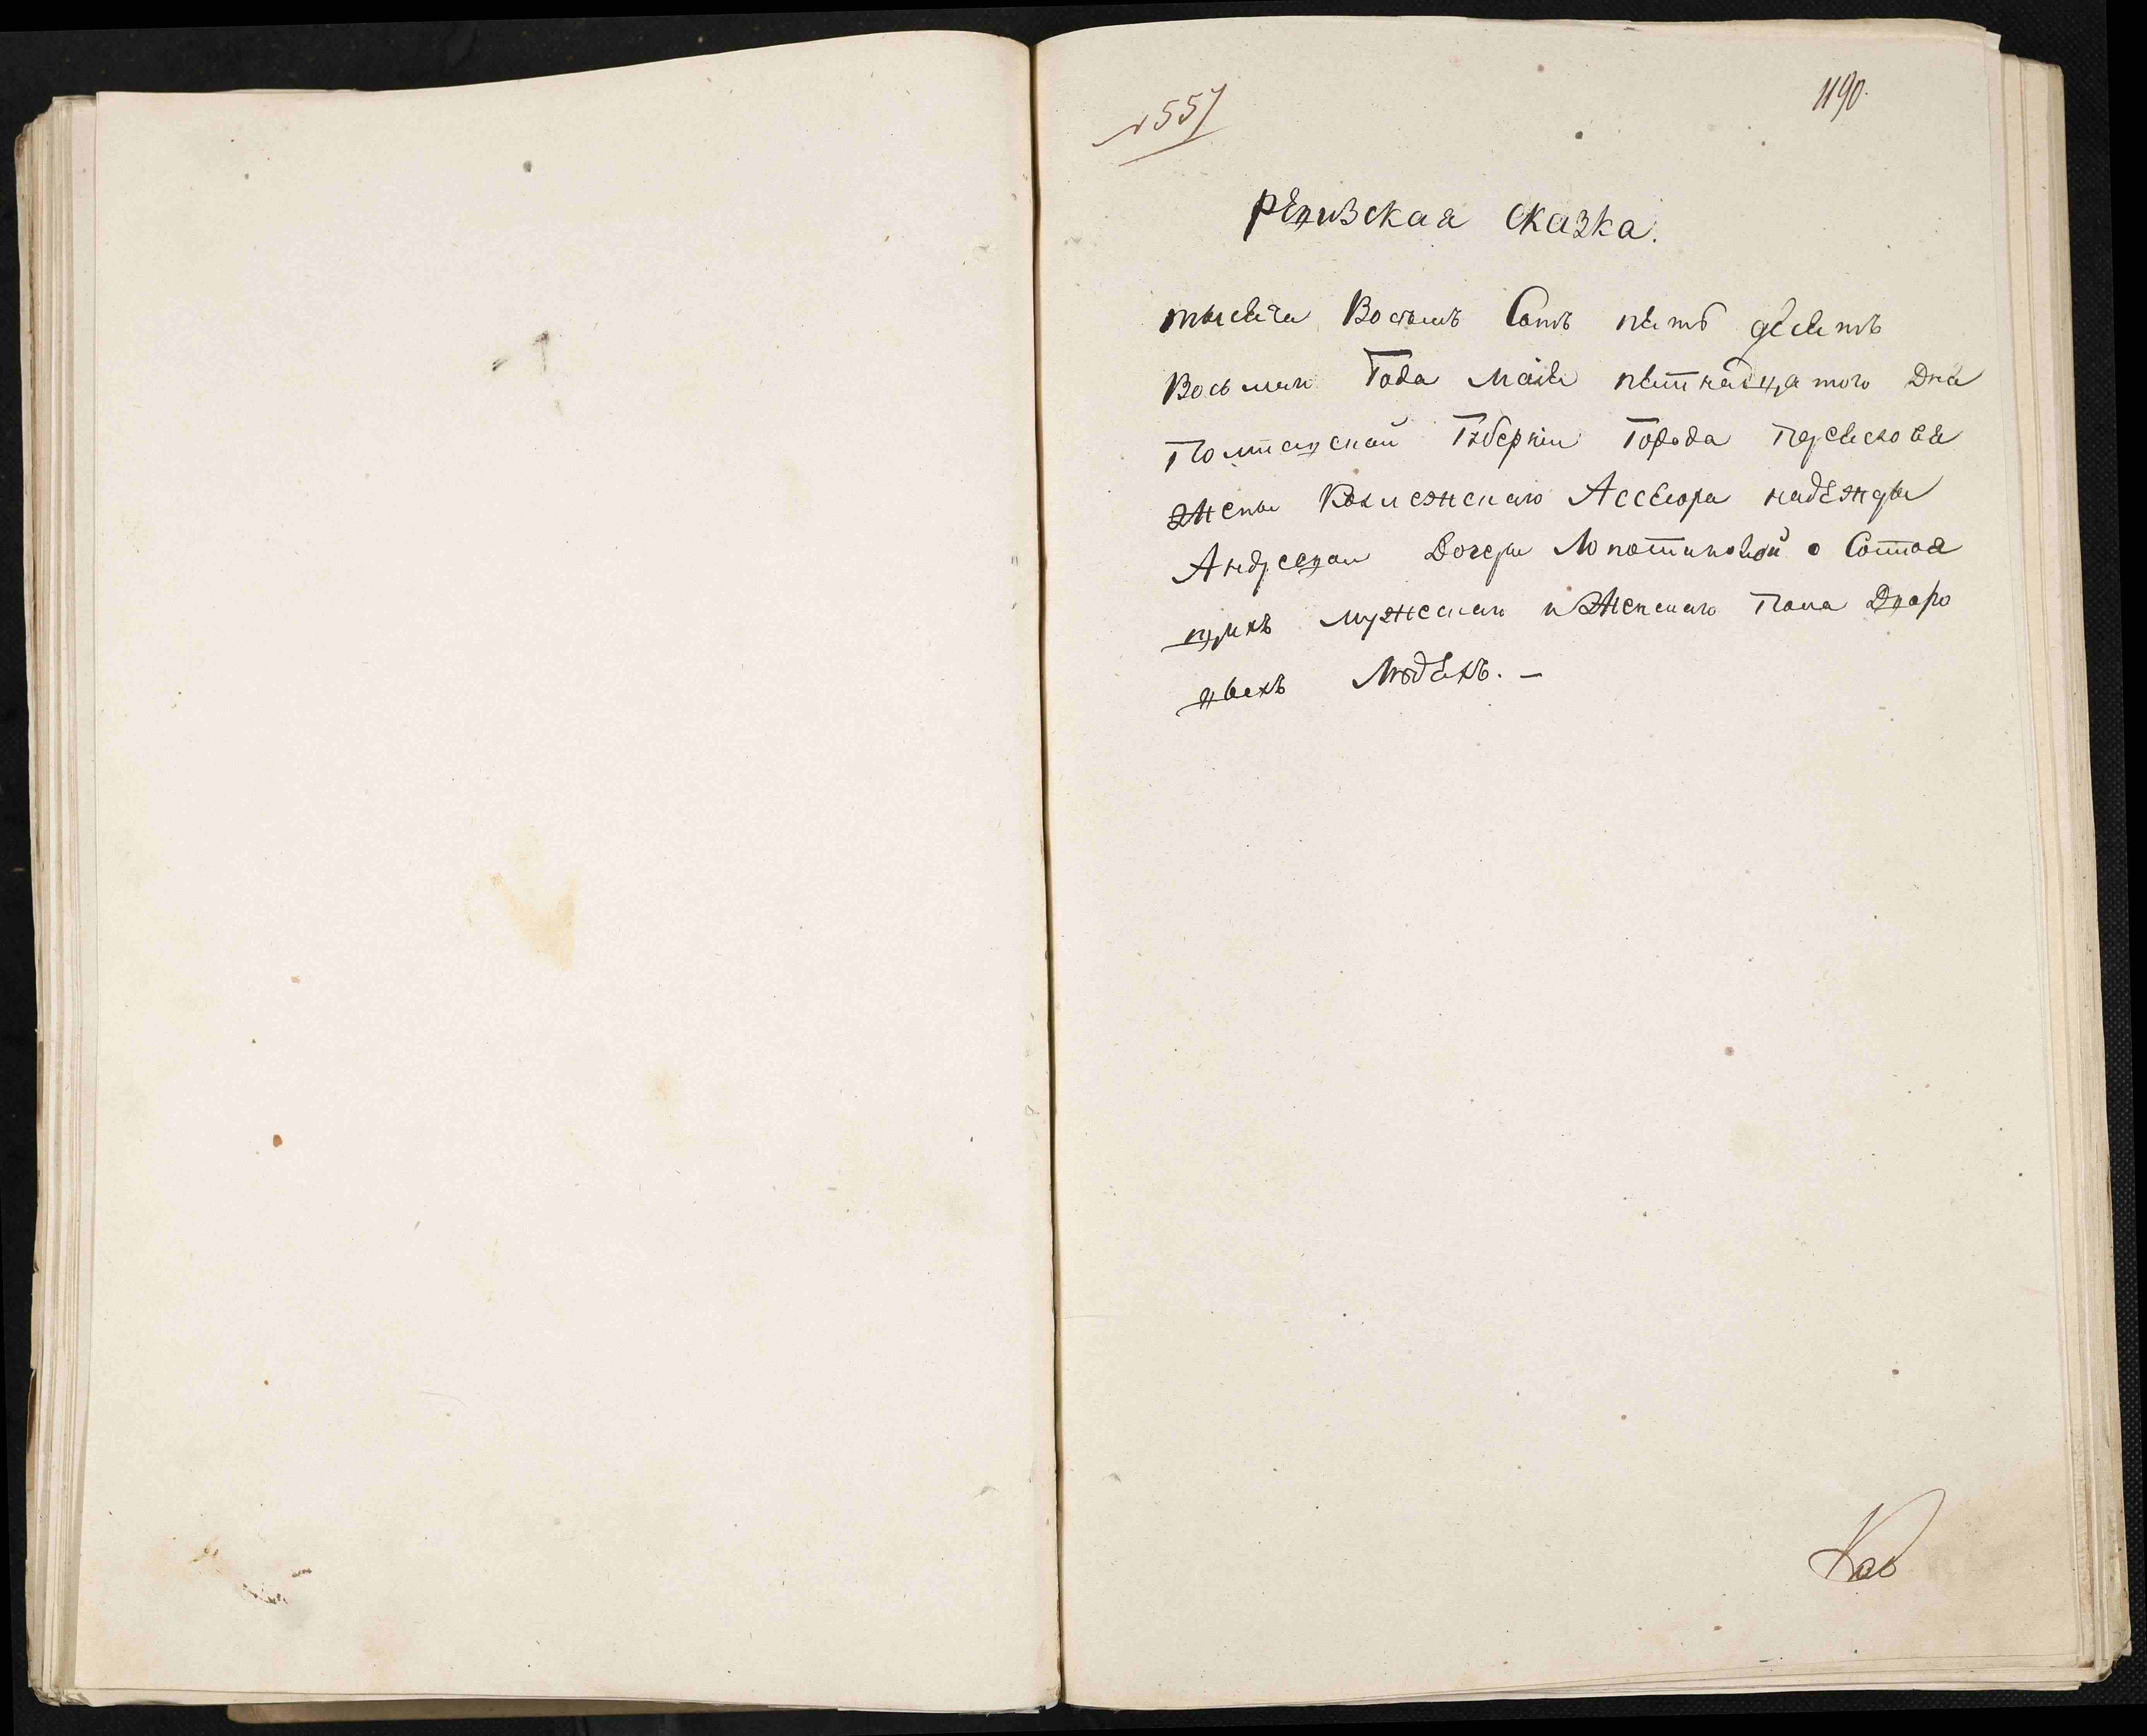 № 557
1190.
Ревизская сказка.
тысяча Восемь Сотъ пять десятъ
Восьмаго Года маія пятнадцатого Дня
Полтавской Губерніи Города Переяслова
жены Колежскаго Ассесора надежды
Андреевой Дочери Лопатиновой о Состоя
щихъ мужескаго и Женскаго Пола Дворо
выхъ Людехъ. —